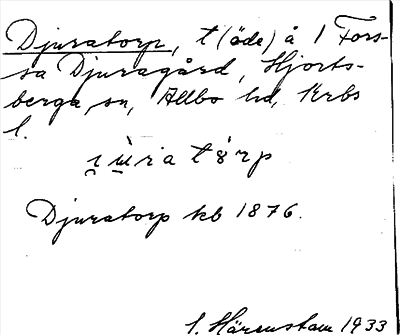 Djuratorp, t (öde) å 1 Fors-
sa Djuragård, Hjorts-
berga sn, Allbo hd, Krbs
l.
Djuratorp kb 1876.
1933